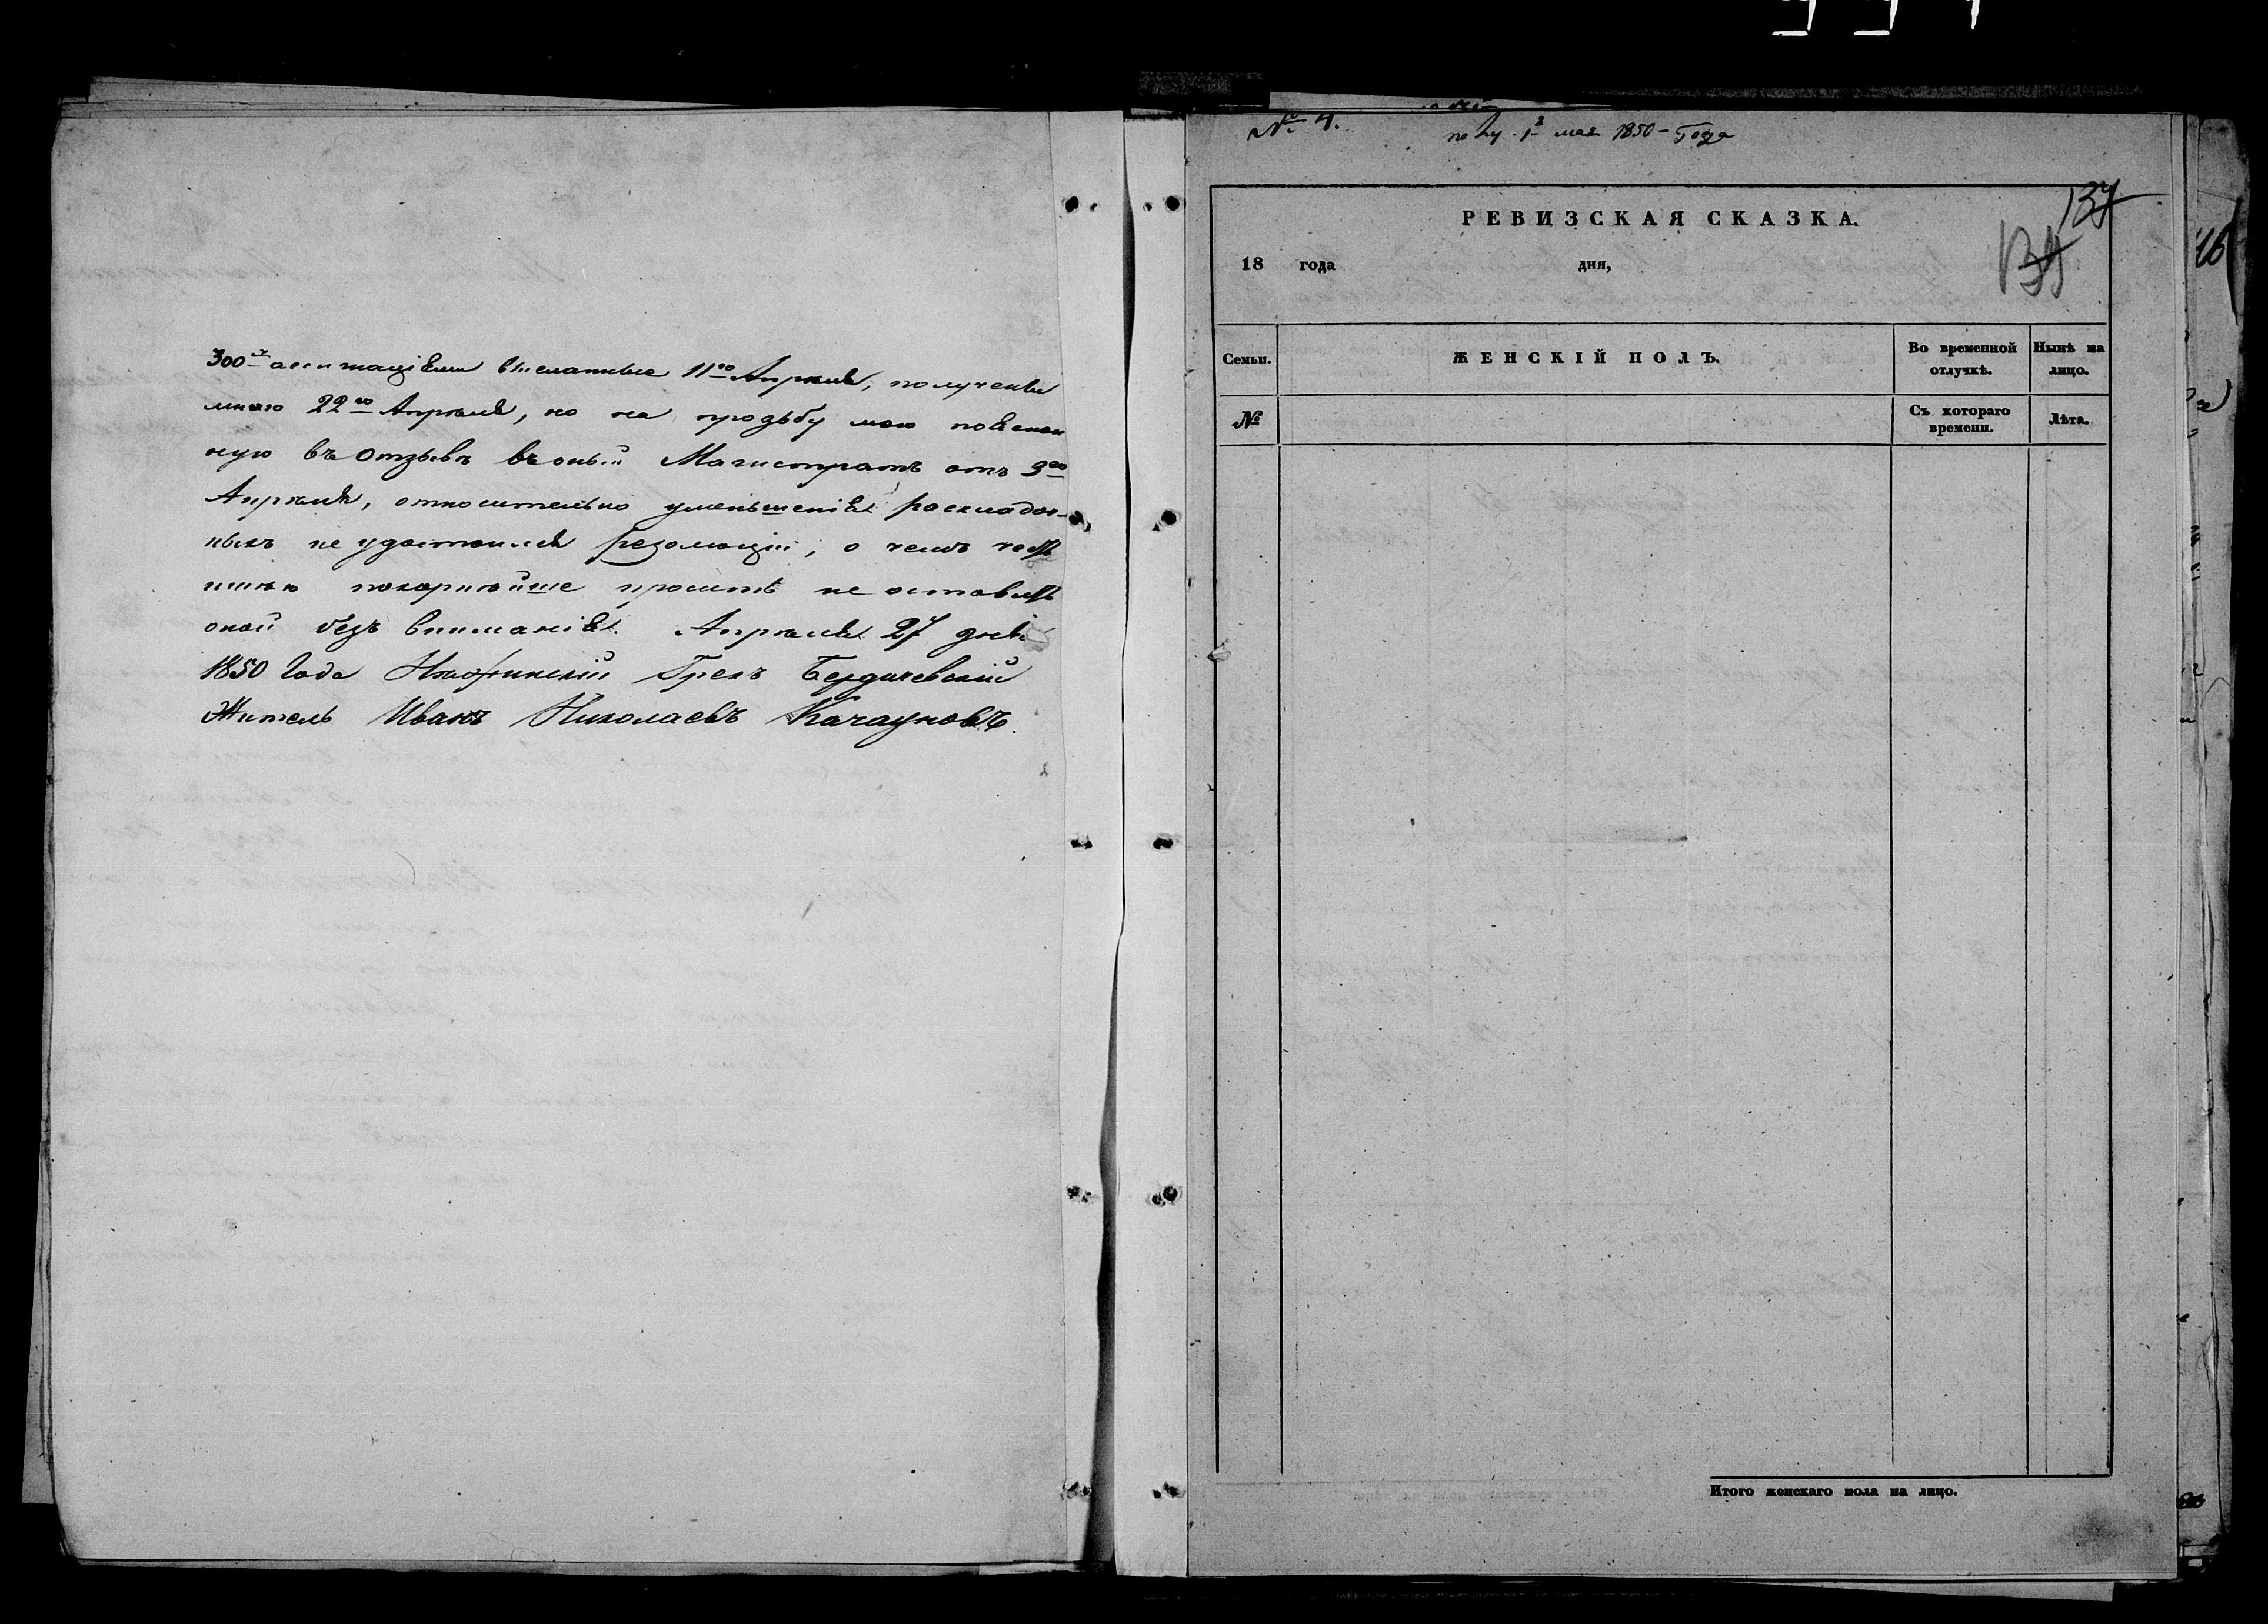 300 ассигнаціями высланные 11го Апрѣля, получены
мною 22го Апрѣля, но на прозьбу мою пояснен
ную въ отзывѣ въ оный Магистратъ отъ 3го
Апрѣля, относительно уменьшенія раскладоч-
ныхъ не удостоился резолюціи, о чемъ честь
имѣю покорнѣйше просить не оставить
оной безъ вниманія. Апрѣля 27 дня
1850 Года Нѣжинскій Грекъ Бердичевскій
Житель Иванъ Николаевъ Качауновъ.
№ 4.
полу. 1 мая 1850 - Года
134
РЕВИЗСКАЯ СКАЗКА.
18 года дня,
Семьи. ЖЕНСКІЙ ПОЛЪ. Во временной отлучкѣ. Нынѣ на лицо.
№ Съ котораго времени. Лѣта.
Итого женскаго пола на лицо.